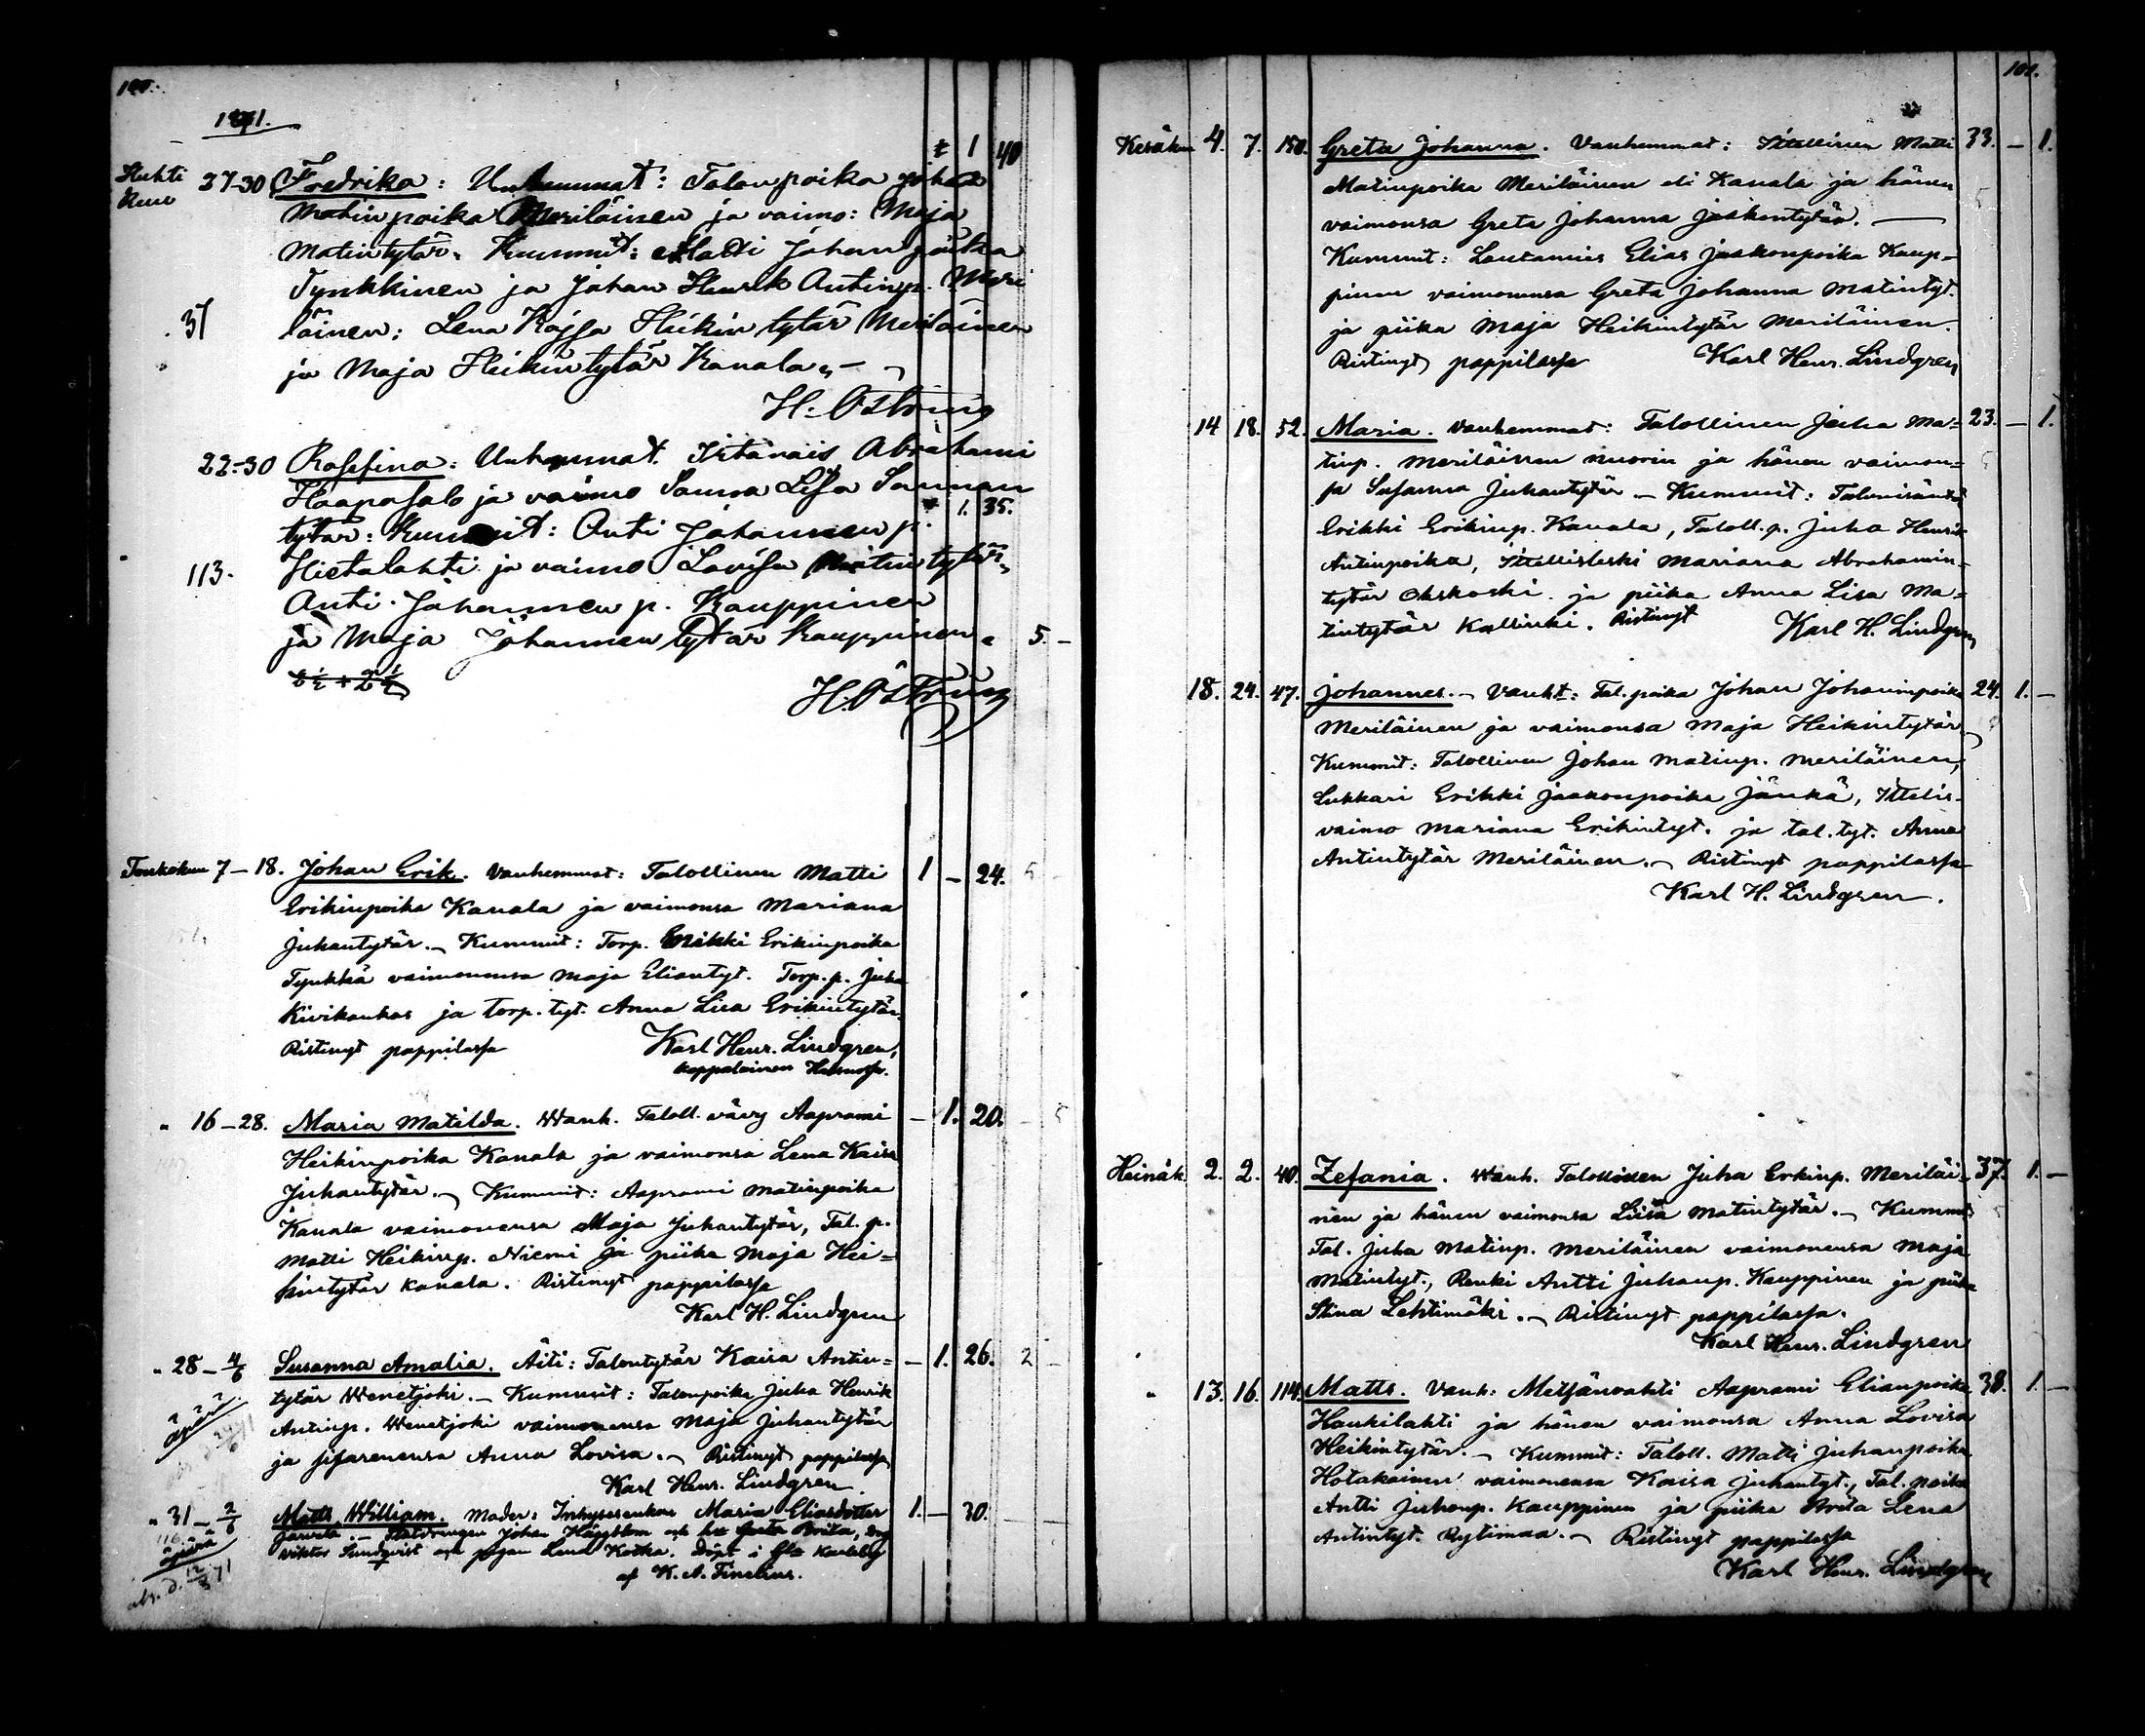 100.
1871.
1 40
Huhti 27-30 Fredrika: Talonpoika Johan
kuu Matinpoika Meriläinen ja vaimo: Maja
Matintytär. Kummit: Matti Johanpoika
Tynkkinen ja Johan Henrik Antinp. Meri
37 läinen: Lena Kajsa Heikintytär Meriläinen
ja Maja Heikintytär Kanala. -
H. Östring
22-30 Rosefina: Abrahami
Haapasalo ja vaimo Sanna Lisa Sannan
tytär: Kummit: Anti Johannen p. 1. 35.
113. Hietalahti ja vaimo Lovisa Matintytär,
Anti Johannen p. Kauppinen
ja Maja Johannentytär Kauppinen. 5. -
2½ + 2½
H. Östring
Toukokuu 7-18. Johan Erik. Vanhemmat: Talollinen Matti 1 - 24. 5 -
Erikinpoika Kanala ja vaimonsa Mariana
Juhantytär. - Kummit: Torp. Erikki Erikinpoika
Tynkkä vaimonensa Maja Eliantyt. Torp. p. Juha
Kivikankas ja torp. tyt. Anna Lisa Erikintytär.
Ristinyt pappilassa Karl Henr. Lindgren,
kappalainen
" 16-28. Maria Matilda. Wanh. Taloll. vävy Aaprami - 1. 20. - 5
Heikinpoika Kanala ja vaimonsa Lena Kaisa
Juhantytär. - Kummit: Aaprami Matinpoika
Kanala vaimonensa Maja Juhantytär, Tal. p.
Matti Heikinp. Niemi ja piika Maja Hei=
kintytär Kanala. Ristinyt pappilassa
Karl H. Lindgren
" 28-4/6 Susanna Amalia. Äiti: Talontytär Kaisa Antin= - 1. 26. 2 -
äpärä tytär Wenetjoki. - Kummit: Talonpoika Juha Henrik
Antinp. Wenetjoki vaimonensa Maja Juhantytär
ja sisarenensa Anna Lovisa. - Ristinyt pappilassa
Karl Henr. Lindgren.
" 31-2/6 Matts William. Moder: Inhysesenkan Maria Eliasdotter 1. - 30.
116. äpärä Järvelä. - Statdrengen Johan Häggblom och hu Greta Brita, dng
Viktor Sundqvist och pigan Lena Kotka. Döpt i Gla Karleby
af K. A. Finelius.
101.
Kesäkuu 4. 7. 150. Greta Johanna. Vanhemmat: Itsellinen Matti 33. - 1.
Matinpoika Meriläinen eli Kanala ja hänen
vaimonsa Greta Johanna Jaakontytär. -
Kummit: Lautamies Elias Jaakonpoika Kaup-
pinen vaimonensa Greta Johanna Matintyt.
ja piika Maja Heikintytär Meriläinen.
Ristinyt pappilassa Karl Henr. Lindgren
14 18. 52. Maria. Vanhemmat: Talollinen Juha Ma= 23. - 1.
tinp. Meriläinen nuorin ja hänen vaimon=
sa Susanna Juhantytär. - Kummit: Talonisäntä
Erikki Erikinp. Kanala, Taloll. p. Juha Henrik
Antinpoika, Itsellisleski Mariana Abrahamin-
tytär Ohskoski ja piika Anna Lisa Ma=
tintytär Kallinki. Ristinyt Karl H. Lindgren
18. 24. 47. Johannes. - Vanht: Tal. poika Johan Johaninpoika 24. 1. -
Meriläinen ja vaimonsa Maja Heikintytär
Kummit: Talollinen Johan Matinp. Meriläinen,
Lukkari Erikki Jaakonpoika Jänkä, Itsellis-
vaimo Mariana Erikintyt. ja tal. tyt. Anna
Antintytär Meriläinen. - Ristinyt pappilassa
Karl H. Lindgren.
Heinäk. 2. 2. 40. Zefania. Wanh. Talollisen Juha Erkinp. Meriläi- 37. 1. -
nen ja hänen vaimonsa Liisa Matintytär. - Kummit
Tal. Juha Matinp. Meriläinen vaimonensa Maja
Matintyt., Renki Antti Juhanp. Kauppinen ja piika
Stina Lehtimäki. - Ristinyt pappilassa.
Karl Henr. Lindgren
" 13. 16. 114. Matts. Vanh: Metsänvahti Aaprami Elianpoika 38. 1. -
Haukilahti ja hänen vaimonsa Anna Lovisa
Heikintytär. - Kummit: Taloll. Matti Juhanpoika
Hotakainen vaimonensa Kaisa Juhantyt., Tal. poika
Antti Juhanp. Kauppinen ja piika Brita Lena
Antintyt. Rytimaa. - Ristinyt pappilassa
Karl Henr. Lindgren